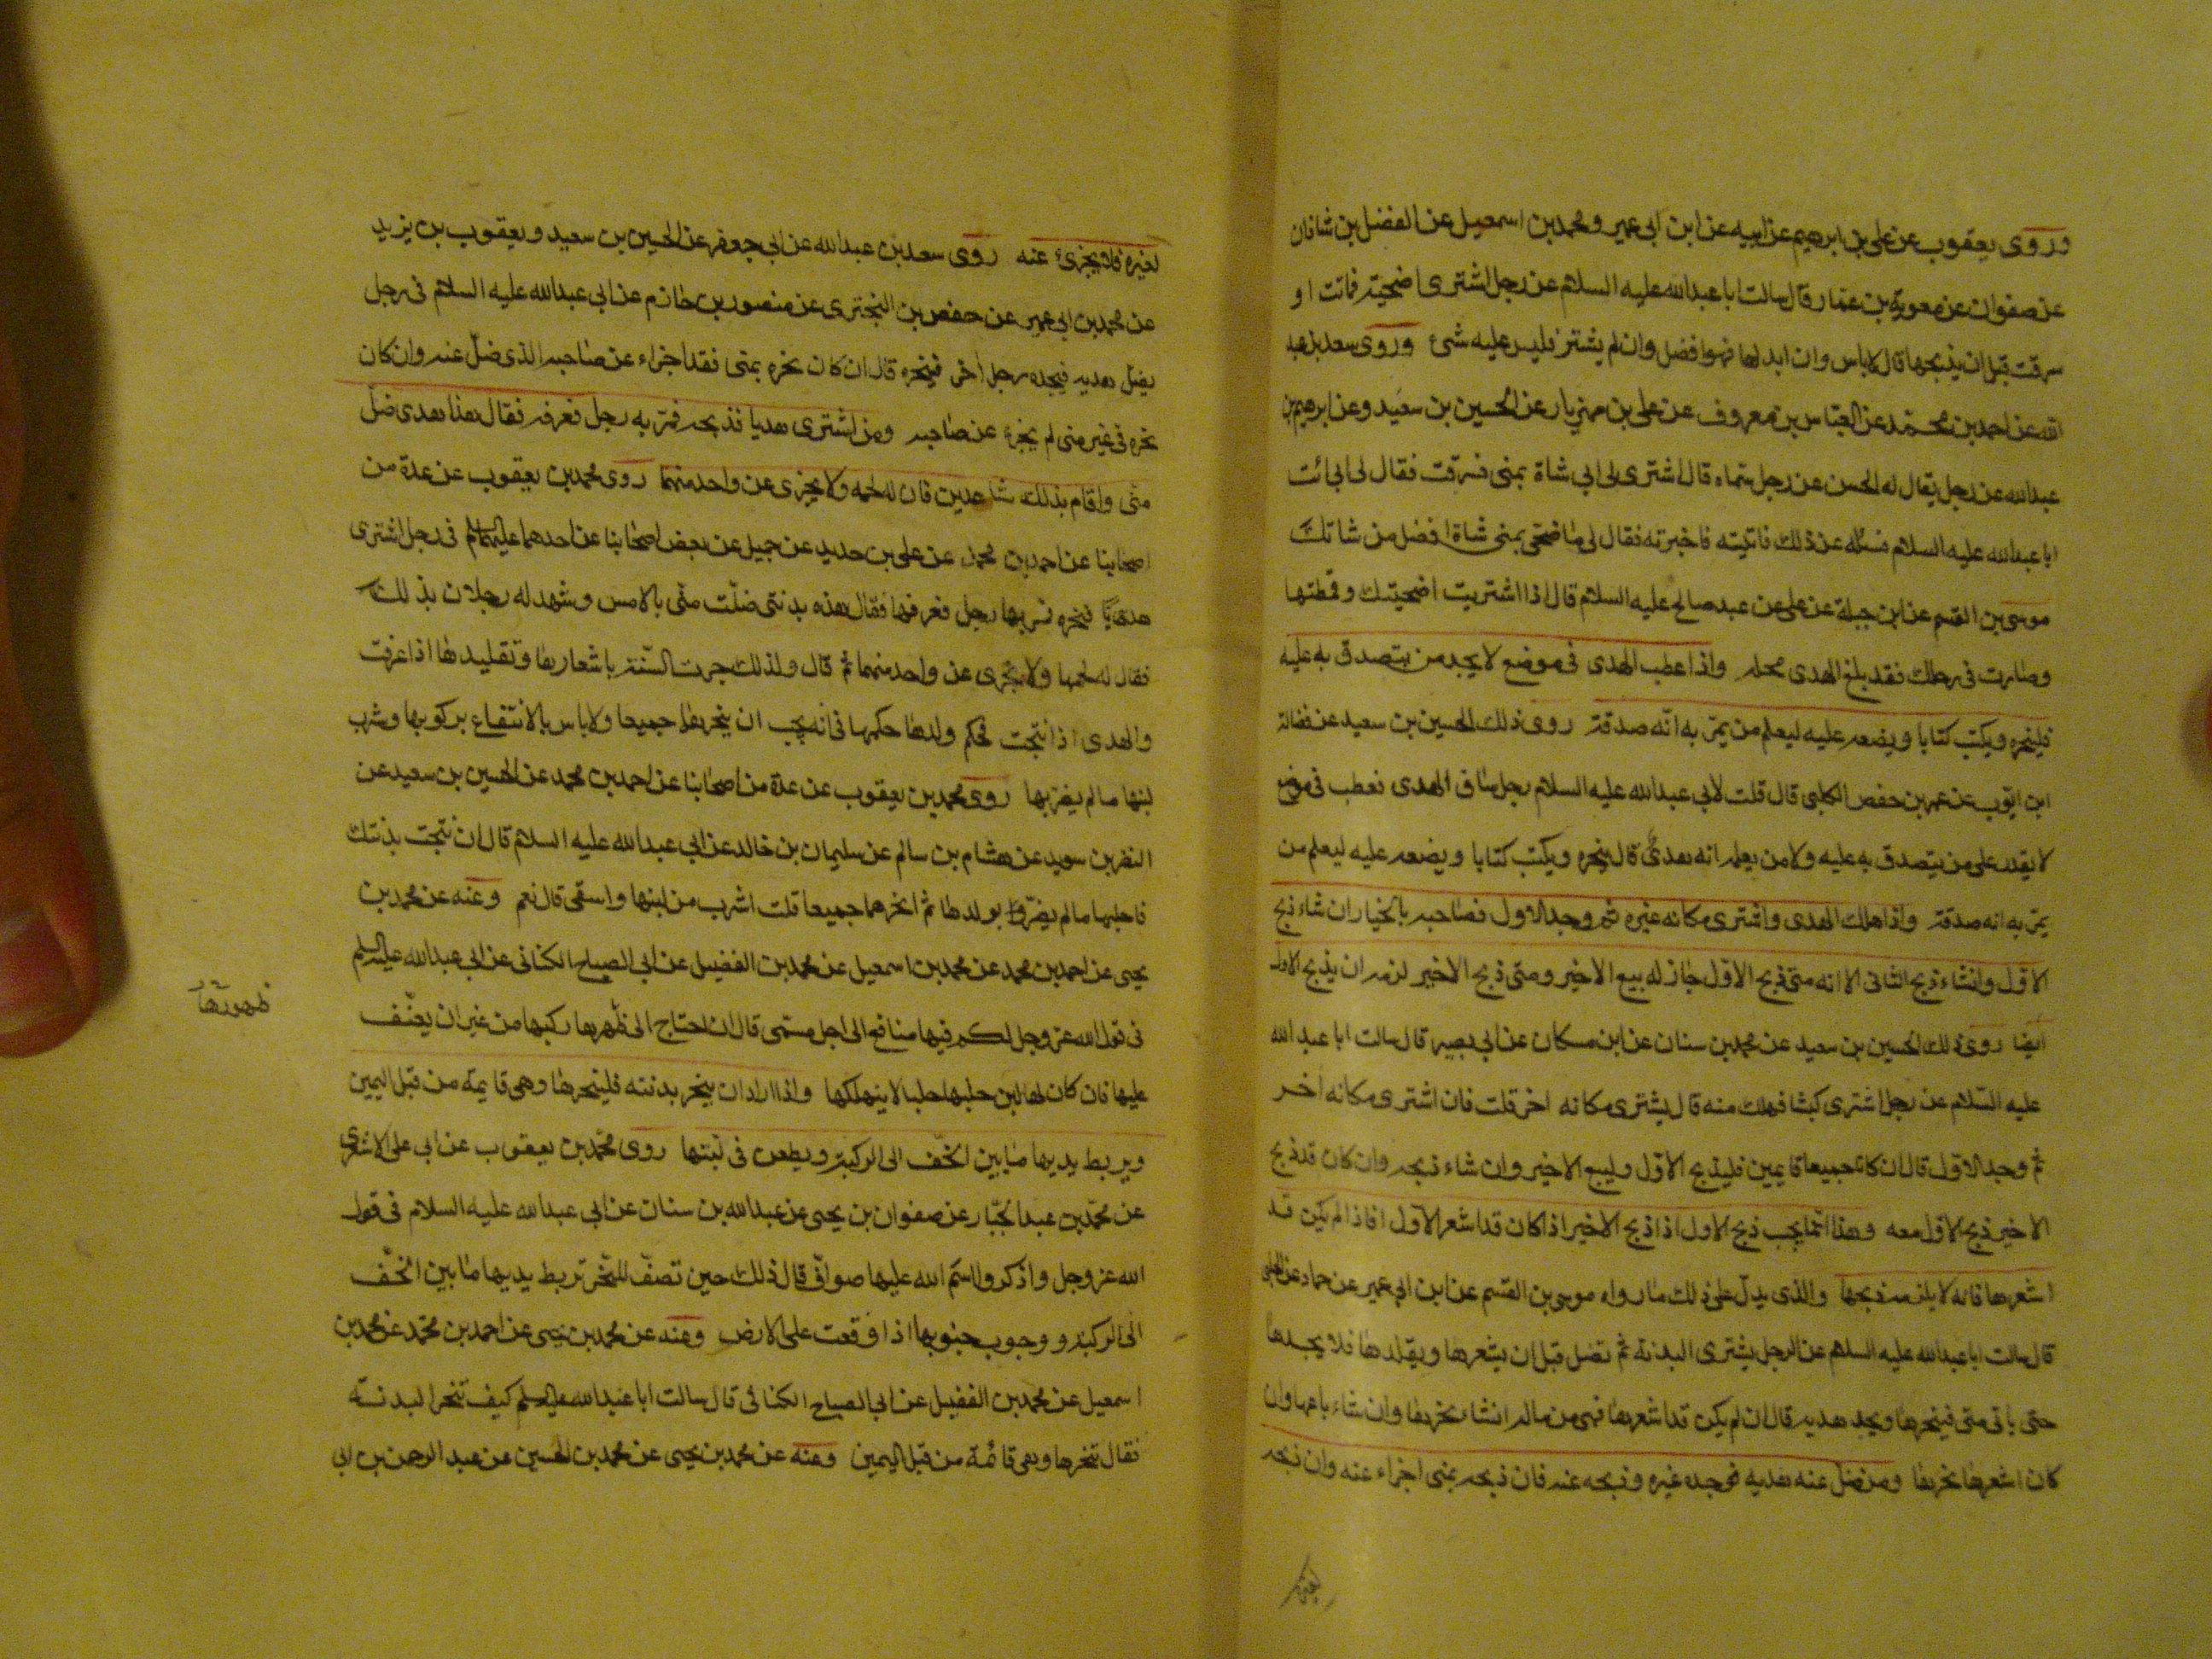 وروى يعقوب عن على بن ابرهيم عن ابيه عن ابن ابى عمير ومحمد بن اسمعيل عن الفضل بن شاذان
عن صفوان عن معوية بن عمار قال سالت ابا عبدالله عليه السلام عن رجل اشترى اضحية فماتت او
سرقت قبل ان يذبحها قال لاباس وان ابدلها فهو افضل وان لم يشتر فليس عليه شئ وروى سعد بن عبد
الله عن احمد بن محمد عن العباس بن معروف عن على بن مهزيار عن الحسين بن سعيد وعن ابرهيم بن
عبدالله عن رجل يقال له الحسن عن رجل سماه قال اشترى لى ابي شاة بمنى فسرقت فقال لى ابى ائت
ابا عبدالله عليه السلام فسئله عن ذلك فاتيته فاخبرته فقال لى ما ضحى بمنى شاة افضل من شاتك
موسى بن القسم عن ابن جبلة عن على عن عبد صالح عليه السلام قال اذا اشتريت اضحيتك وقمطتها
وصارت فى رحلك فقد بلغ الهدى محله واذا عطب الهدى فى موضع لا يجد من يتصدق به عليه
فلينحره ويكتب كتابا ويضعه عليه ليعلم من يمر به انه صدقة روى ذلك الحسين بن سعيد عن فضالة
ابن ايوب عن عمر بن حفص الكلبى قال قلت لابي عبدالله عليه السلام رجل ساق الهدى فعطب فى موضع
لا يقدر على من يتصدق به عليه ولا من يعلمه انه هدى قال ينحره ويكتب كتابا ويضعه عليه ليعلم من
يمر به انه صدقة واذا هلك الهدى واشترى مكانه غيره ثم وجد الاول فصاحبه بالخيار ان شاء ذبح
الاول وان شاء ذبح الثانى الا انه متى ذبح الاول جاز له بيع الاخير ومتى ذبح الاخير لزمه ان يذبح الاول
ايضا روى ذلك الحسين بن سعيد عن محمد بن سنان عن ابن مسكان عن ابي بصير قال سالت ابا عبد الله
عليه السلام عن رجل اشترى كبشا فهلك منه قال يشترى مكانه اخر قلت فان اشترى مكانه اخر
ثم وجد الاول قال ان كانا جميعا قايمين فليذبح الاول وليبع الاخير وان شاء ذبحه وان كان قد ذبح
الاخير ذبح الاول معه وهذا انما يجب ذبح الاول اذا ذبح الاخير اذا كان قد اشعر الاول فاذا لم يكن قد
اشعرها فانه لا يلزمه ذبحها والذى يدل على ذلك ما رواه موسى بن القسم عن ابن ابي عمير عن حماد عن الحلبى
قال سالت ابا عبدالله عليه السلام عن الرجل يشترى البدنة ثم تضل قبل ان يشعرها ويقلدها فلا يجدها
حتى ياتى منى فينحرها ويجد هديه قال ان لم يكن قد اشعرها فهى من ماله ان شاء نحرها وان شاء باعها وان
كان اشعرها نحرها ومن ضل عنه هديه فوجده غيره وذبحه عنه فان ذبحه بمنى اجزاء عنه وان ذبحه
لغيره فلا يجزئ عنه روى سعد بن عبدالله عن ابي جعفر عن الحسين بن سعيد ويعقوب بن يزيد
عن محمد بن ابي عمير عن حفص بن البخترى عن منصور بن حازم عن ابي عبدالله عليه السلام فى رجل
يضل هديه فيجده رجل اخر فينحره قال ان كان نحره بمنى فقد اجزاء عن صاحبه الذى ضل عنه وان كان
نحره فى غير منى لم يجزء عن صاحبه ومن اشترى هديا فذبحه فمر به رجل فعرفه فقال هذا هدى ضل
منى واقام بذلك شاهدين فان له لحمه ولا يجزى عن واحد منهما روى محمد بن يعقوب عن عدة من
اصحابنا عن احمد بن محمد عن على بن حديد عن جميل عن بعض اصحابنا عن احدهما عليهما السلام فى رجل اشترى
هديا فنحره فمر بها رجل فعرفها فقال هذه بدنتى ضلت منى بالامس وشهد له رجلان بذلك
فقال له لحمها ولا يجزى عن واحد منهما ثم قال ولذلك جرت السنة باشعارها وتقليدها اذا عرفت
والهدى اذا نتجت فحكم ولدها حكمها فى انه يجب ان ينحرها جميعا ولاباس بالانتفاع بركوبها وشرب
لبنها ما لم يضربها روى محمد بن يعقوب عن عدة من اصحابنا عن احمد بن محمد عن الحسين بن سعيد عن
النضر بن سويد عن هشام بن سالم عن سليمان بن خالد عن ابي عبدالله عليه السلام قال ان نتجت بدنتك
فاحلبها ما لم يضر بولدها ثم انحرهما جميعا قلت اشرب من لبنها واسقى قال نعم وعنه عن محمد بن
يحيى عن احمد بن محمد عن محمد بن اسمعيل عن محمد بن الفضيل عن ابي الصباح الكنانى عن ابي عبدالله عليه السلم
فى قول الله عز وجل لكم فيها منافع الى اجل مسمى قال ان احتاج الى ظهرها ركبها من غير ان يعنف
ظهورها
عليها فان كان لها لبن حلبها حلبا لا ينهكها واذا اراد ان ينحر بدنته فلينحرها وهى قايمة من قبل اليمين
ويربط يديها ما بين الخف الى الركبة ويطعن فى لبتها روى محمد بن يعقوب عن ابي على الاشعرى
عن محمد بن عبد الجبار عن صفوان بن يحيى عن عبدالله بن سنان عن ابي عبدالله عليه السلام فى قول
الله عز وجل واذكروا اسم الله عليها صواف قال ذلك حين تصف للنحر تربط يديها ما بين الخف
الى الركبة ووجوب جنوبها اذا وقعت على الارض وعنه عن محمد بن يحيى عن احمد بن محمد عن محمد بن
اسمعيل عن محمد بن الفضيل عن ابي الصباح الكنانى قال سالت ابا عبدالله عليه السلم كيف تنحر البدنة
فقال تنحرها وهى قائمة من قبل اليمين وعنه عن محمد بن يحيى عن محمد بن الحسين عن عبد الرحمن بن ابى